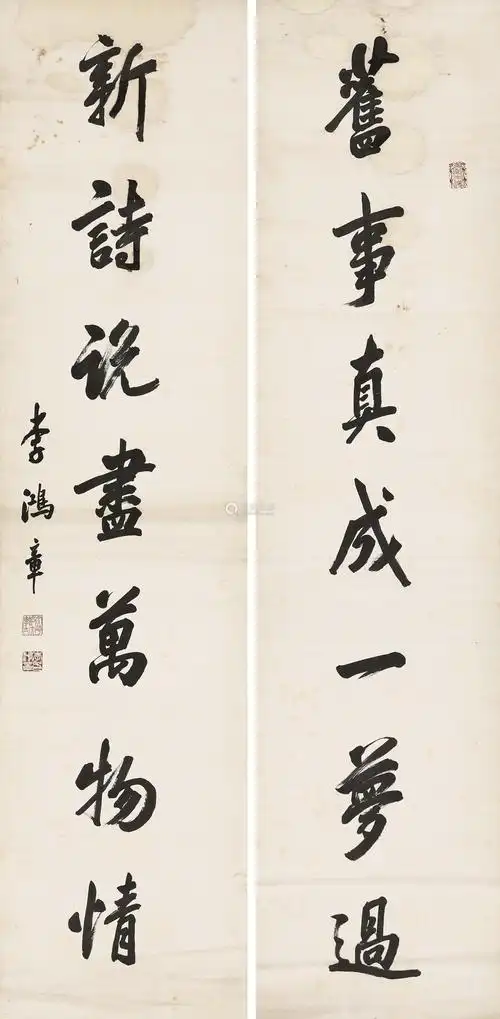 舊事真成一夢過
新詩说盡萬物情
李鴻章